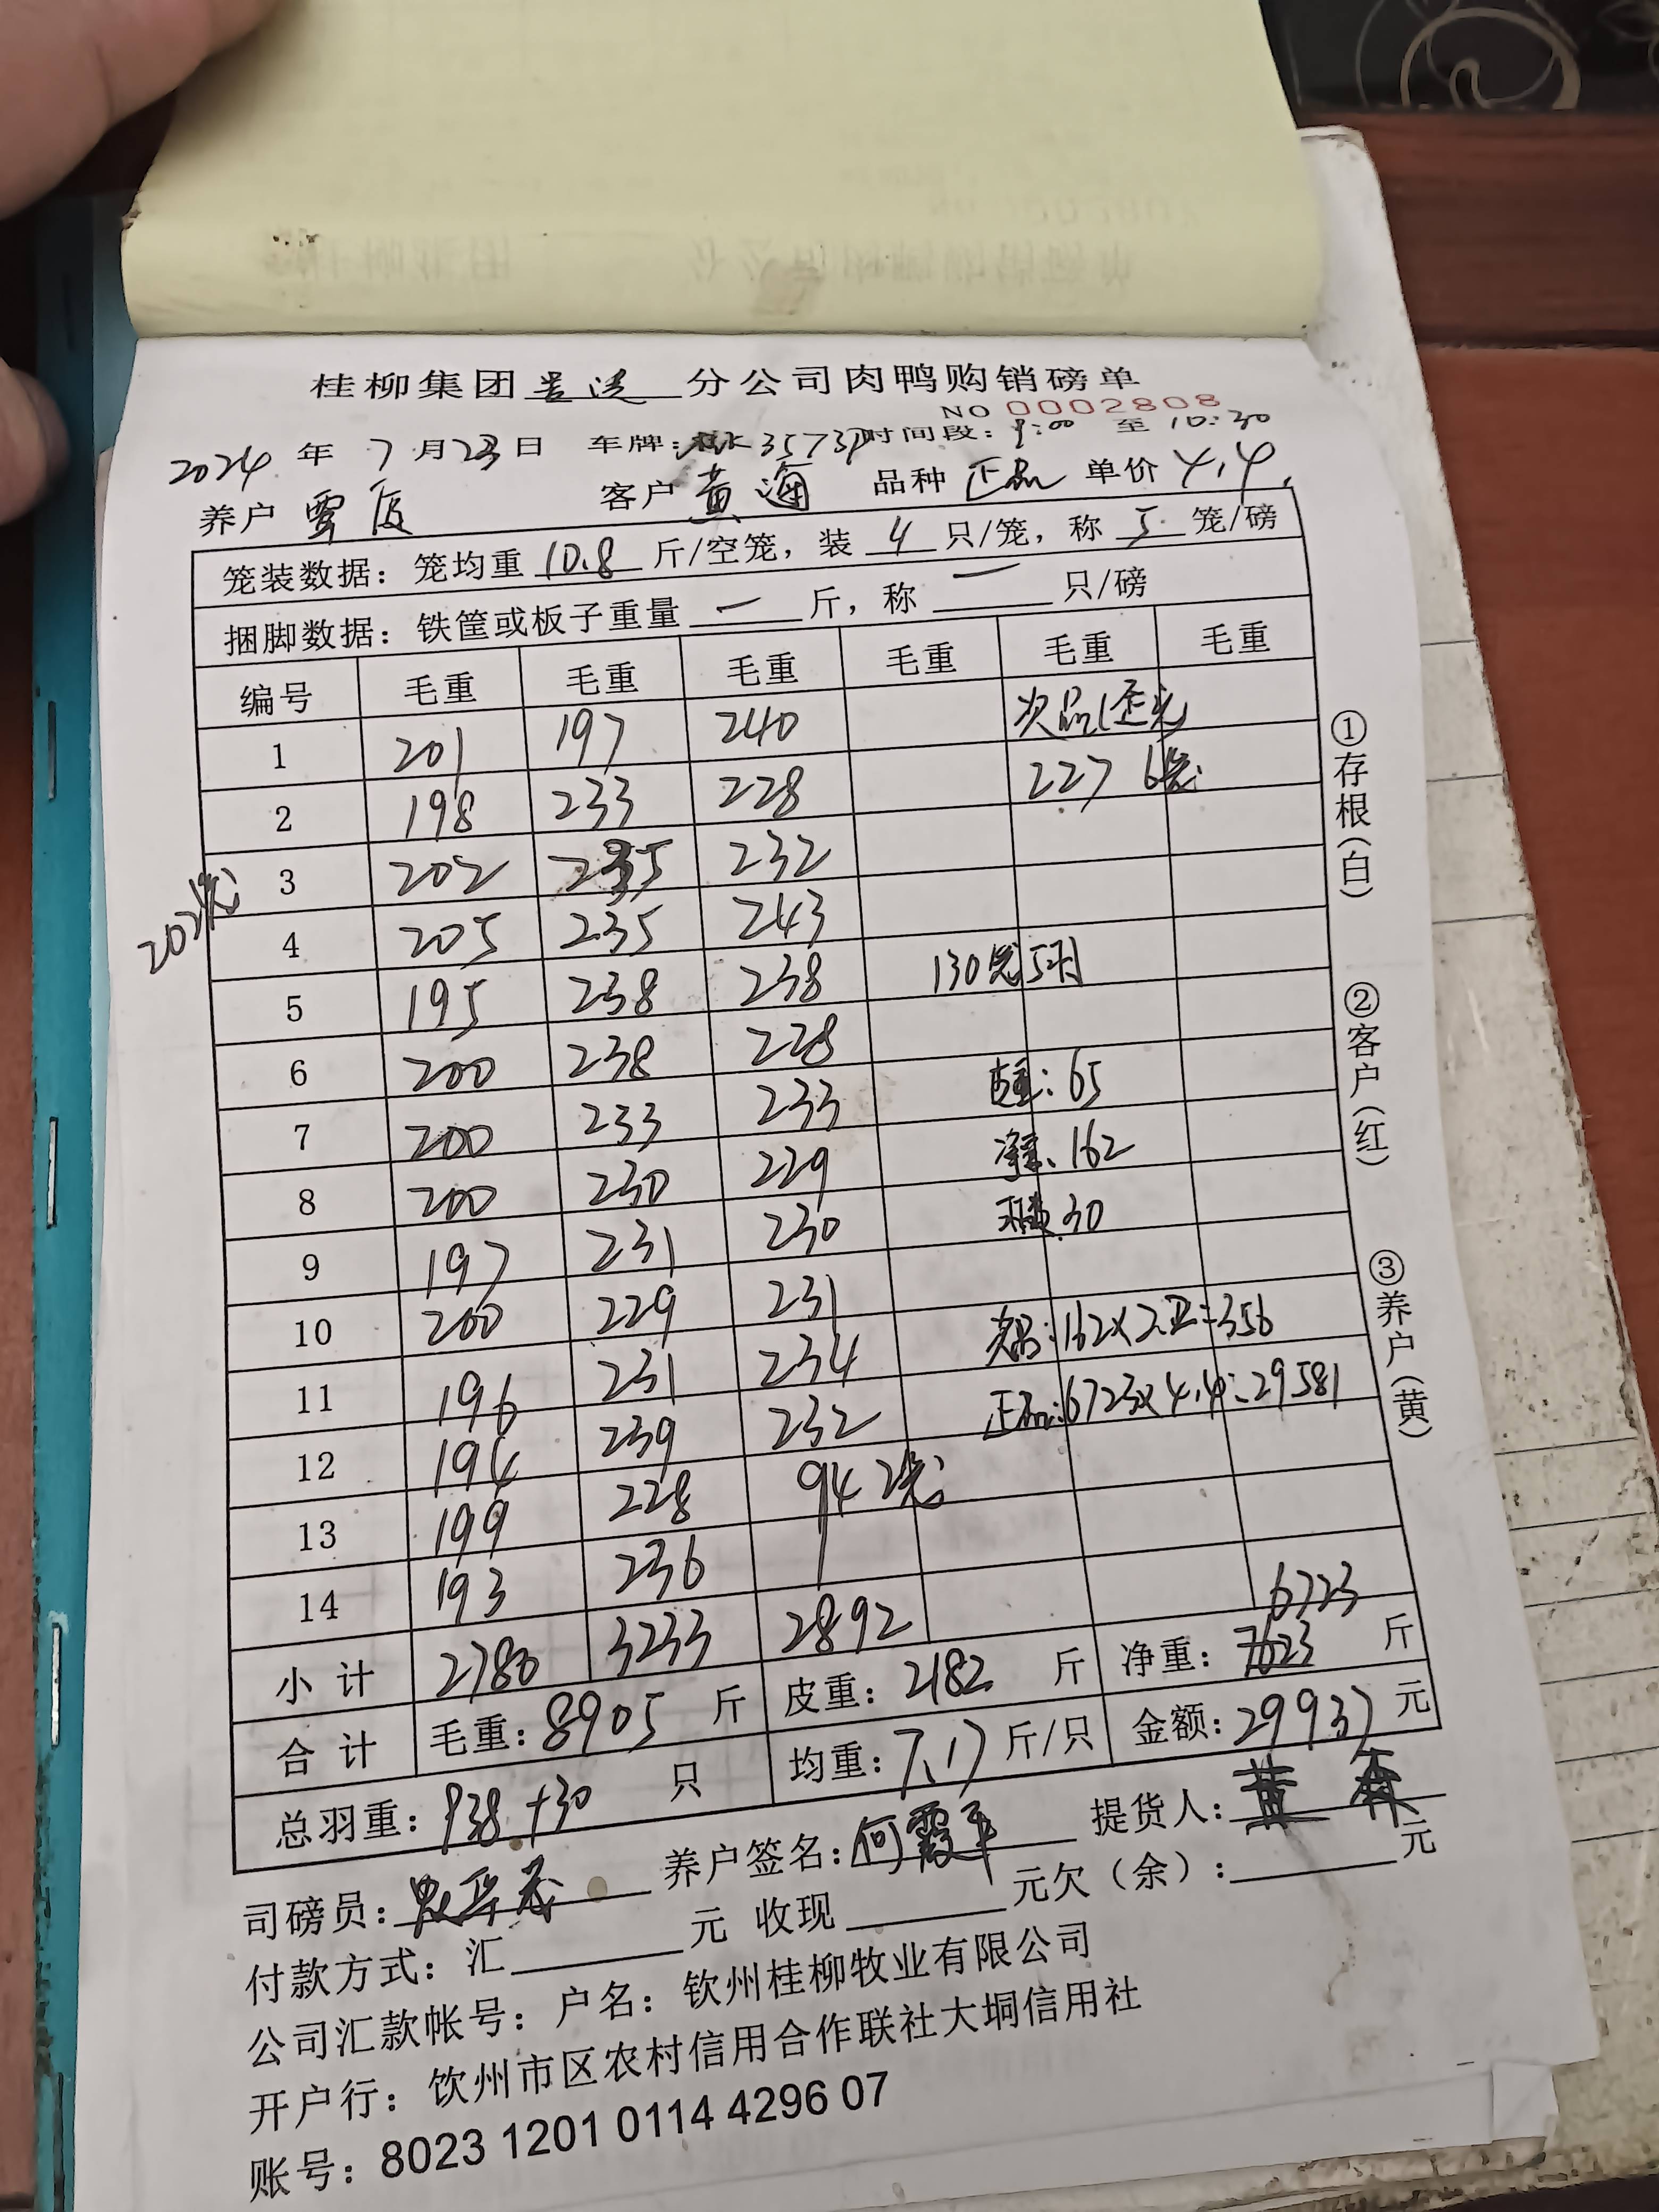 桂柳集团 分公司肉鸭购销磅单
NO 0002808
2024 年 7 月 23 日 车牌: 3573 时间段: 9:00 至 10:30
养户 覃 客户 黄海 品种 正品 单价 4.4
笼装数据: 笼均重 10.8 斤/空笼, 装 4 只/笼, 称 5 笼/磅
捆脚数据: 铁筐或板子重量 一 斤, 称 一 只/磅
编号 毛重 毛重 毛重 毛重 毛重 毛重
1 201 197 240 次品
2 198 233 228 227 6笼
3 202 235 232
202笼
4 205 235 243
5 195 238 238 130笼
6 200 238 228
7 200 233 233 皮重: 65
8 200 230 229 净重: 162
9 197 231 230 30
10 200 229 231
11 196 231 234 次品: 162×2.2=356
12 194 239 232 正品: 6723×4.4=29581
13 199 228 94 2笼
14 193 236
小计 2780 3233 2892
6723
合计 毛重: 8905 斤 皮重: 2182 斤 净重: 7023 斤
总羽重: 938+30 只 均重: 7.17 斤/只 金额: 29937 元
司磅员: 养户签名: 何霞 提货人: 黄
付款方式: 汇 元 收现 元欠(余): 元
公司汇款帐号: 户名: 钦州桂柳牧业有限公司
开户行: 钦州市区农村信用合作联社大垌信用社
账号: 8023 1201 0114 4296 07
①存根(白)
②客户(红)
③养户(黄)